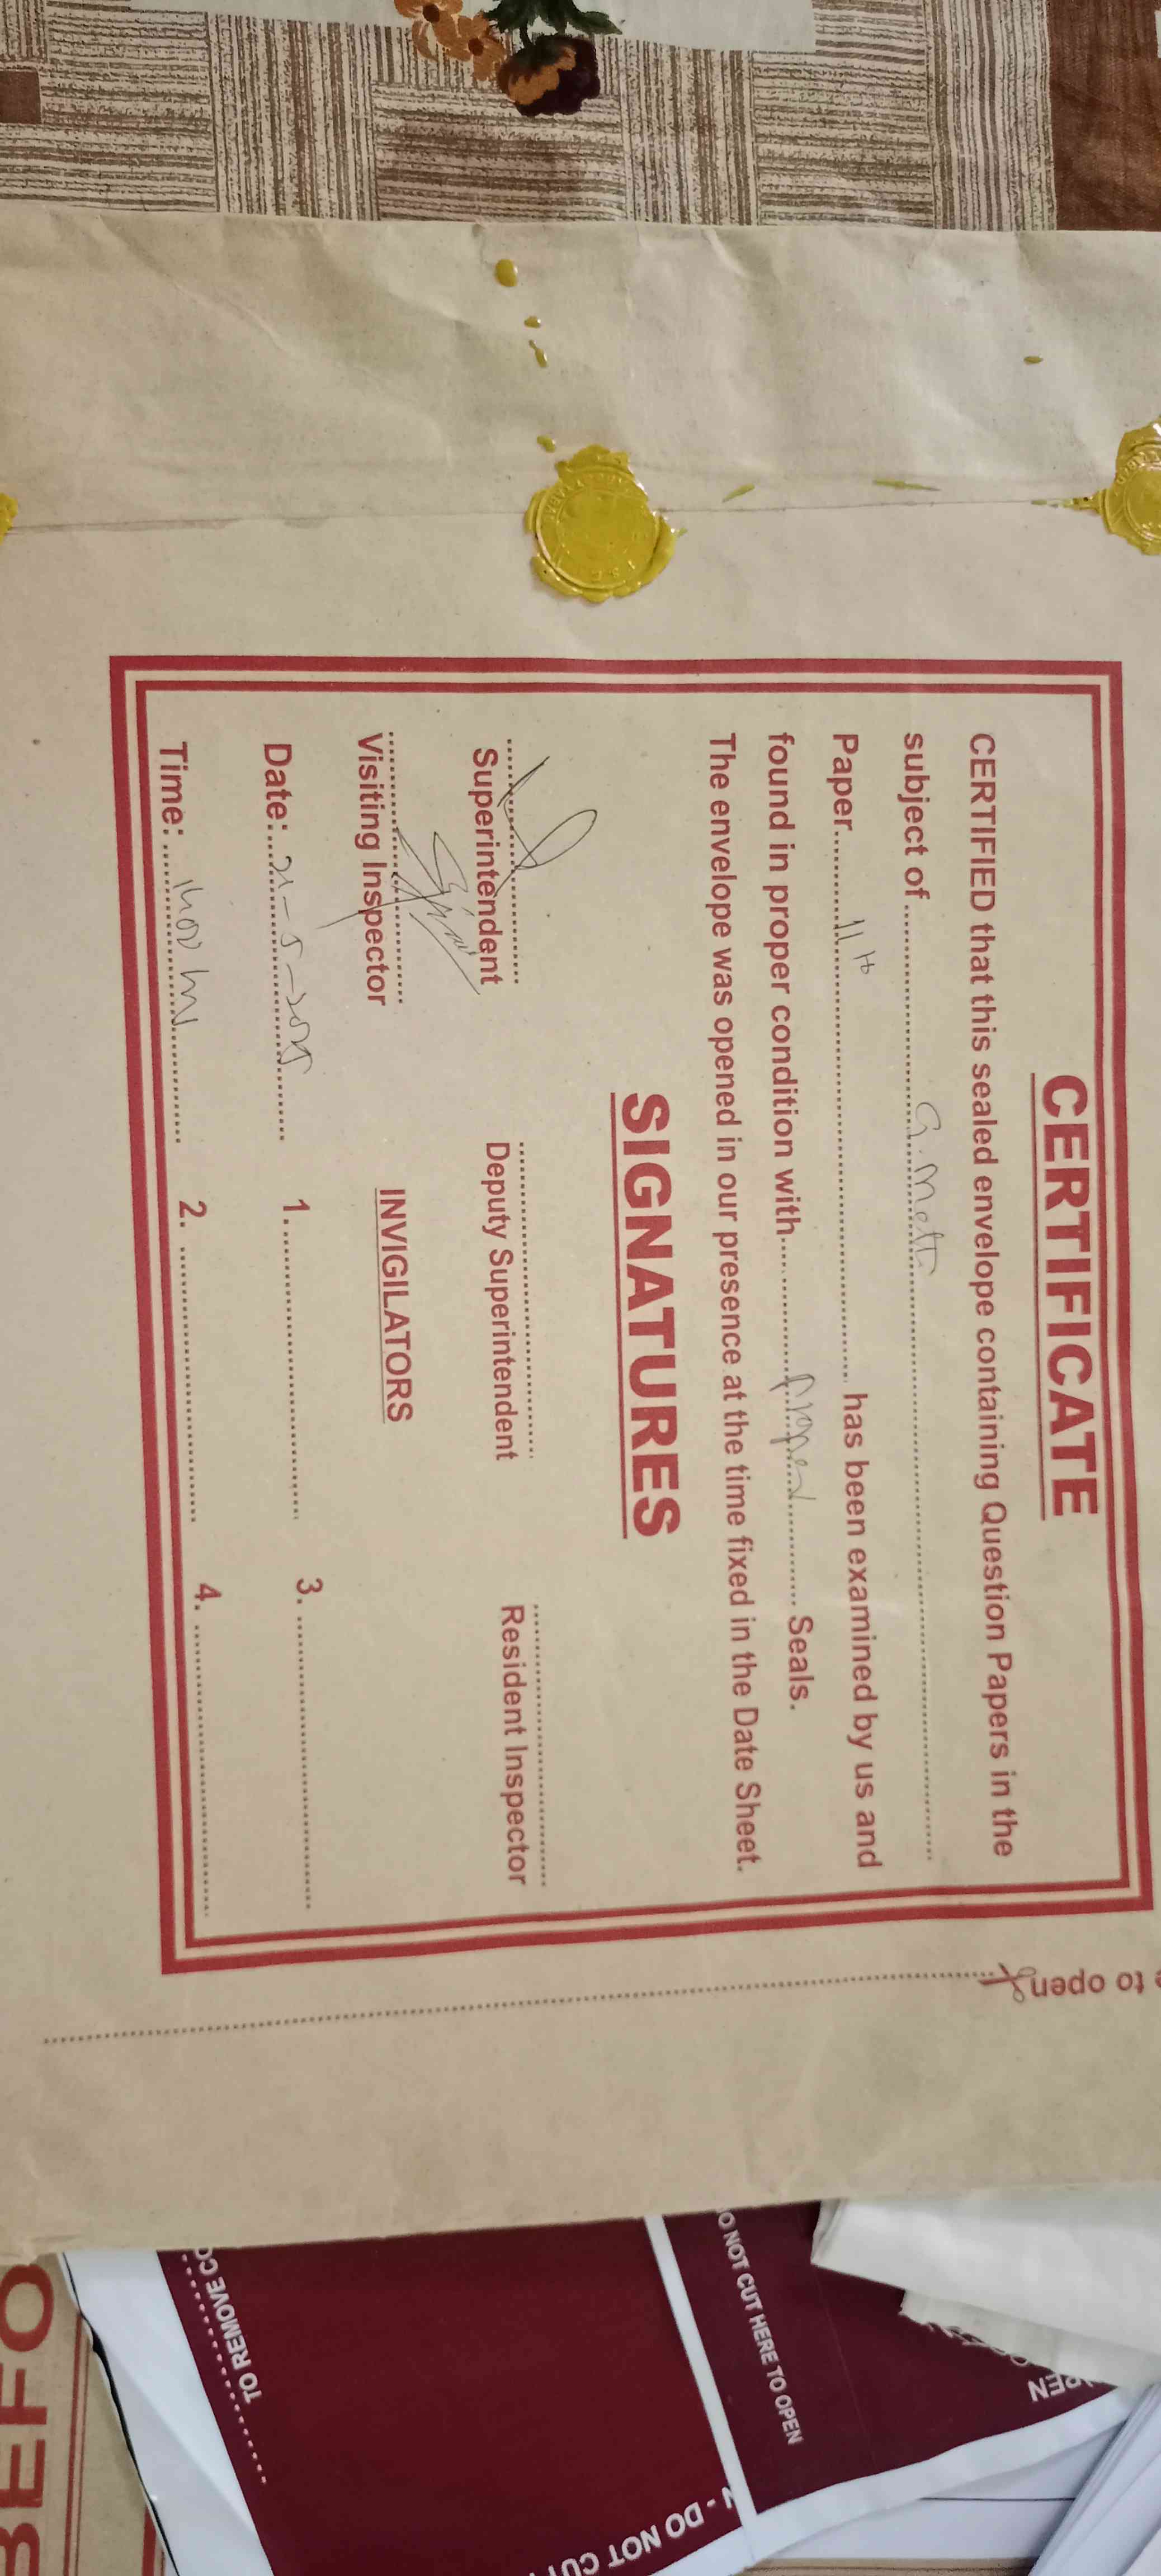 CERTIFICATE
CERTIFIED that this sealed envelope containing Question Papers in the
subject of .......... G. Math ..........
Paper.......... 11th .......... has been examined by us and
found in proper condition with.......... proper .......... Seals.
The envelope was opened in our presence at the time fixed in the Date Sheet.
SIGNATURES
Superintendent
Deputy Superintendent
Resident Inspector
Visiting Inspector
INVIGILATORS
Date: 21-5-2025
1. ..........
3. ..........
Time: 1400 hrs
2. ..........
4. ..........
to open
TO REMOVE CO
O NOT CUT HERE TO OPEN
N - DO NOT CUT
PEN
BEFO